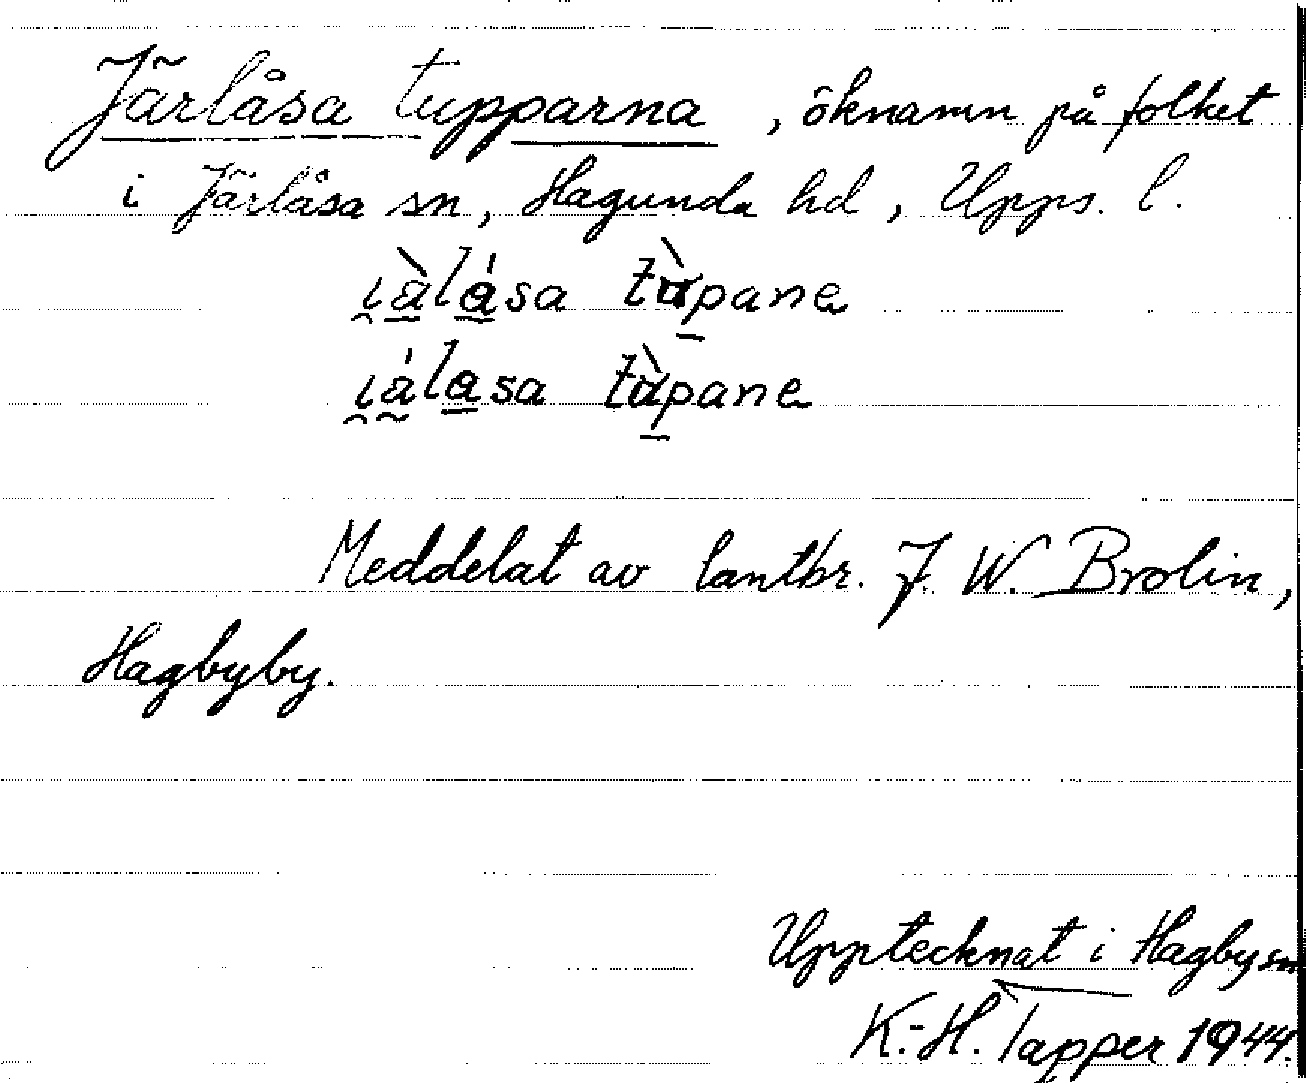 Järlåsa tupparna, öknamn på folket
i Järlåsa sn, Hagunda hd, Upps. l.
ı̯àlása tàpane
ı̯álasa tàpane
Meddelat av lantbr. J. W. Brolin,
Hagbyby.
Upptecknat i Hagby sn
K.-H. Tapper 1944.